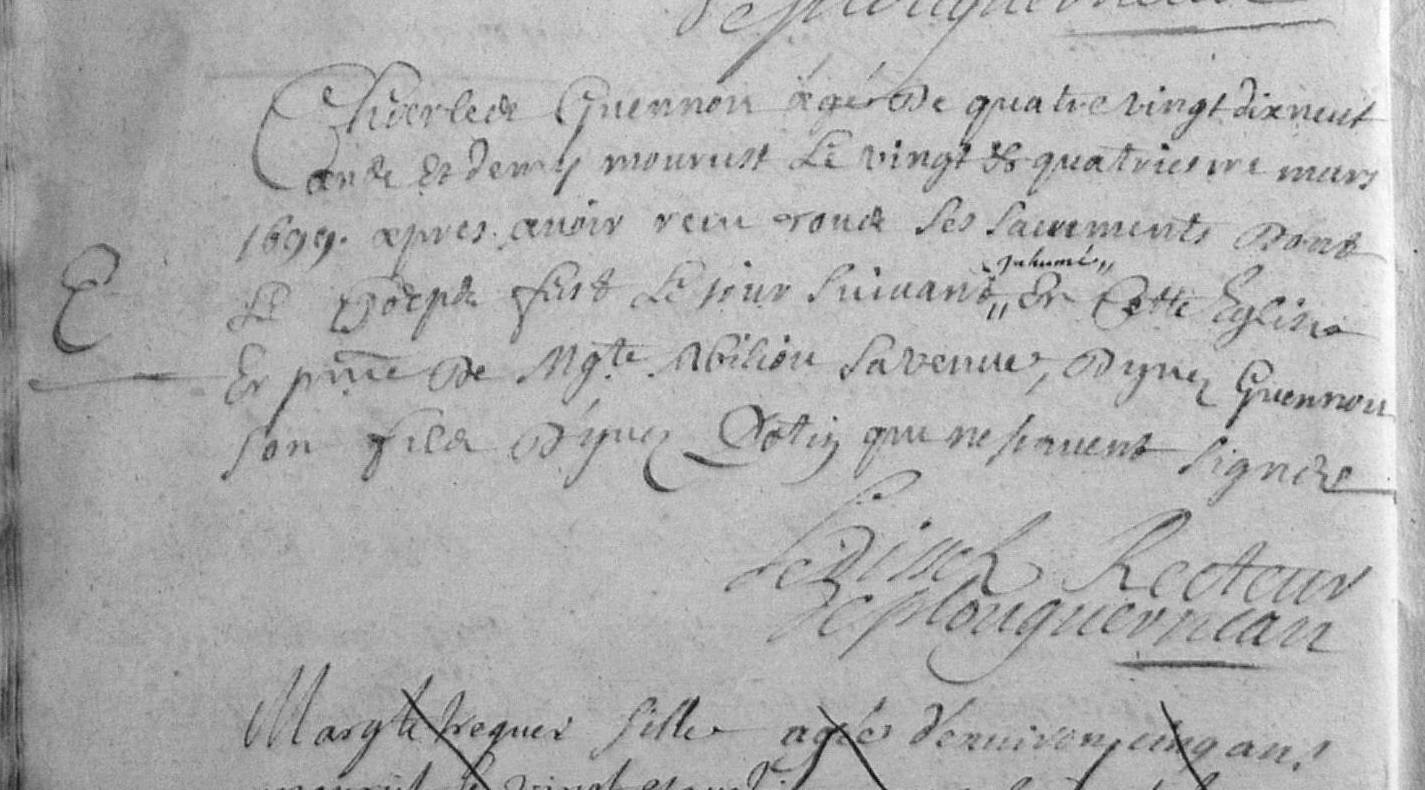 de plouguerneau
Charles Guennou agé de quatre vingt dixneuf
ans et demy mourust le vingt & quatriesme mars
1699. apres avoir receu tous ses sacrements dont
le corps fust le jour suivant „ inhumé „ en cette Eglise
E
en pnce de Mgte Abiliou sa venue, d'yves Guennou
son fils d'yves Cotin qui ne sçavent signer
Recteur
de plouguerneau
Margte treguer fille agée d'environ cinq ans
mourut le vingt